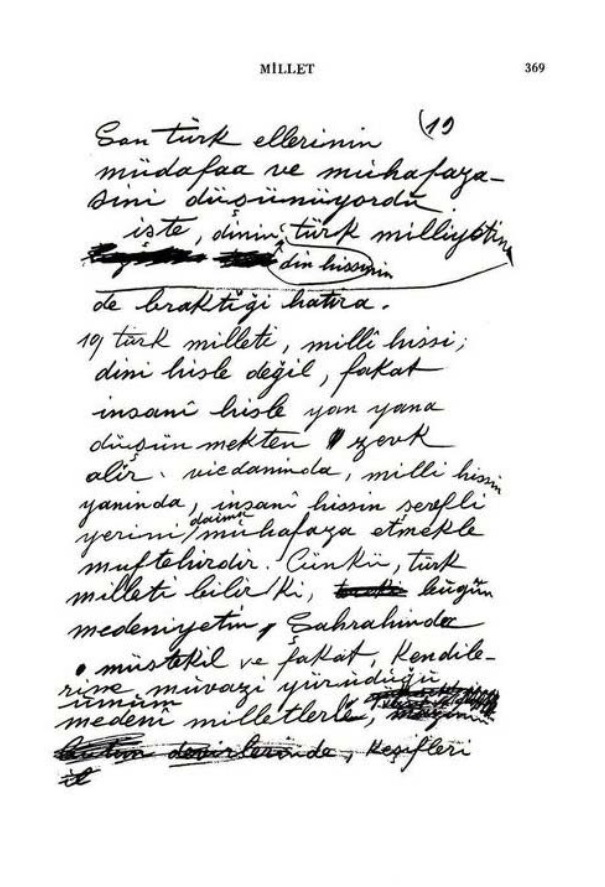 MİLLET 369
(19
Son türk ellerinin
müdafaa ve muhafaza-
sını düşünüyordu
işte, dinin, türk milliyetin
din hissinin
de bıraktığı hatıra.
19) türk milleti, millî hissi;
dini hisle değil, fakat
insanî hisle yan yana
düşünmekten zevk
alır. vicdanında, milli hissin
yanında, insanî hissin şerefli
yerini daima muhafaza etmekle
muftehirdir. Çünkü, türk
milleti bilir ki, bugün
medeniyetin, Şahrahında
müstakil ve fakat, kendile-
rine müvazi yürüdüğü
umum
medenî milletlerle,
devirlerinde, keşifleri